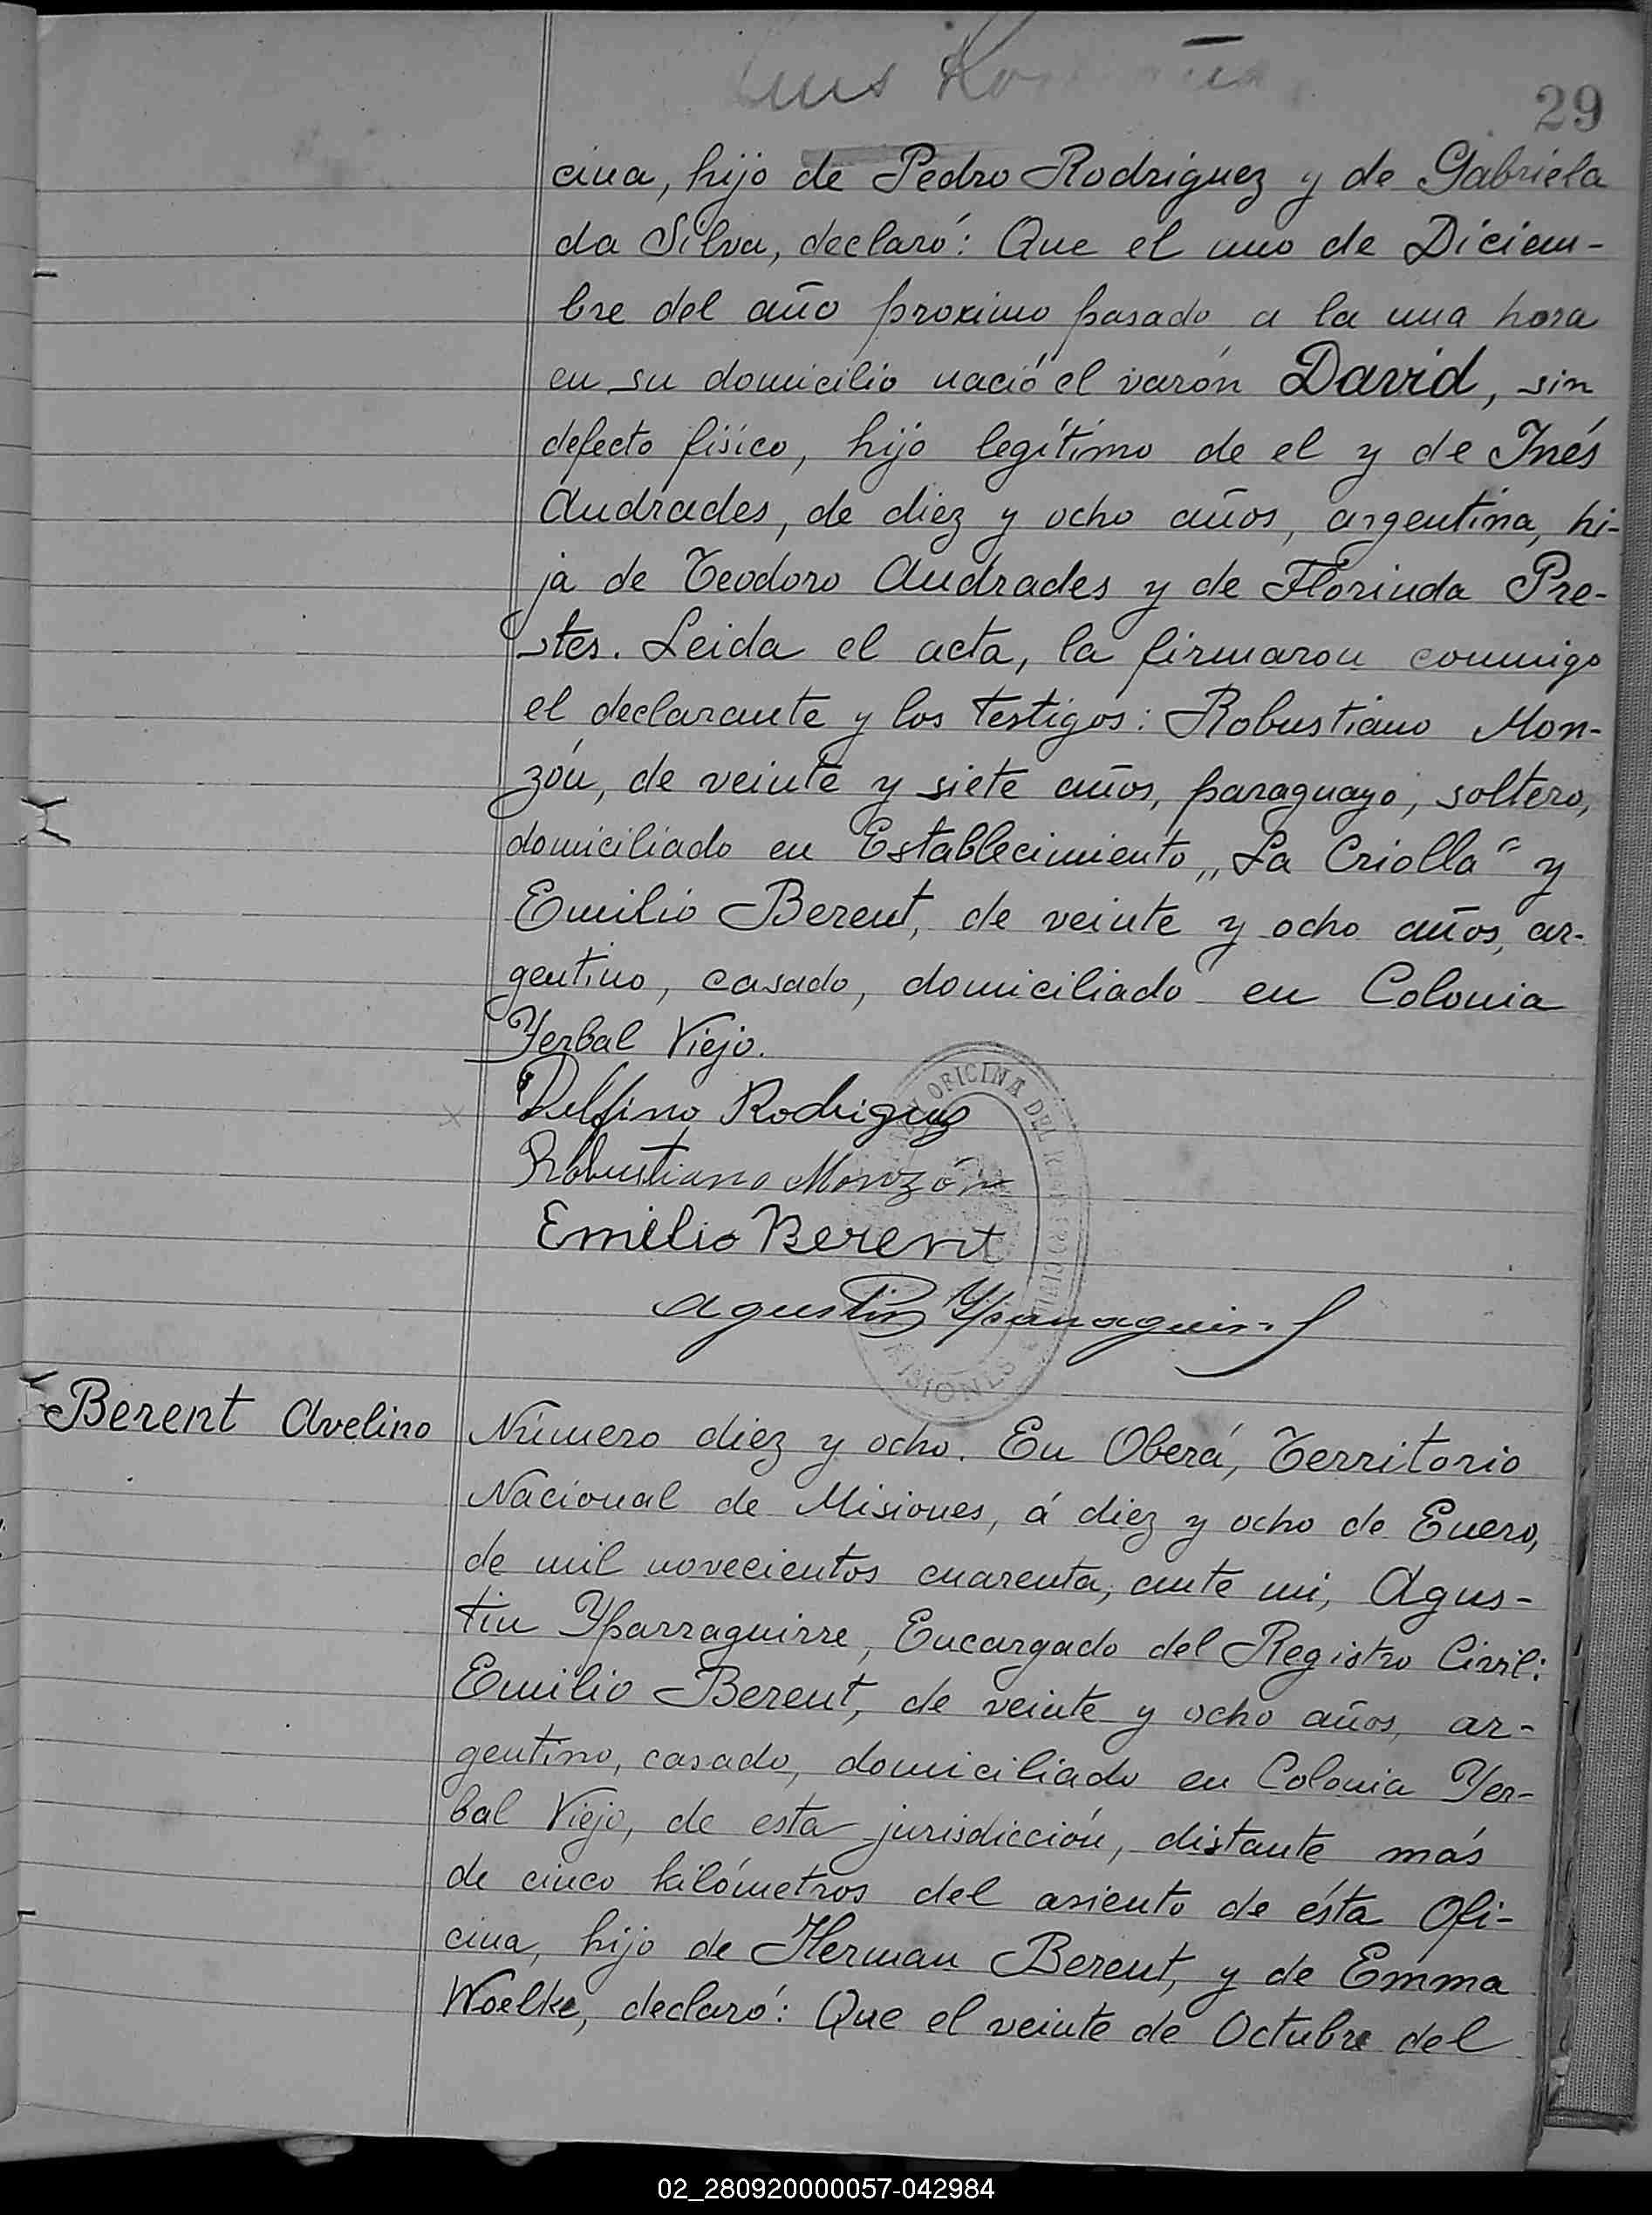 Luis
29
cina, hijo de Pedro Rodriguez y de Gabriela
da Silva, declaró: Que el uno de Diciem-
bre del año proximo pasado a la una hora
en su domicilio nació el varón David, sin
defecto físico, hijo legítimo de el y de Inés
Andrades, de diez y ocho años, argentina, hi-
ja de Teodoro Andrades y de Florinda Pre-
stes. Leida el acta, la firmaron conmigo
el declarante y los testigos: Robustiano Mon-
zón, de veinte y siete años, paraguayo, soltero,
domiciliado en Establecimiento „La Criolla" y
Emilio Berent, de veinte y ocho años, ar-
gentino, casado, domiciliado en Colonia
Yerbal Viejo.
Delfino Rodriguez
Robustiano Monzón
Emilio Berent
Agustin Yparraguirre
OFICINA DEL
MISIONES
Berent Avelino
Número diez y ocho. En Oberá, Territorio
Nacional de Misiones, á diez y ocho de Enero,
de mil novecientos cuarenta, ante mi, Agus-
tin Yparraguirre, Encargado del Registro Civil:
Emilio Berent, de veinte y ocho años, ar-
gentino, casado, domiciliado en Colonia Yer-
bal Viejo, de esta jurisdicción, distante más
de cinco kilómetros del asiento de ésta Ofi-
cina, hijo de Herman Berent, y de Emma
Woelke, declaró: Que el veinte de Octubre del
02_280920000057-042984